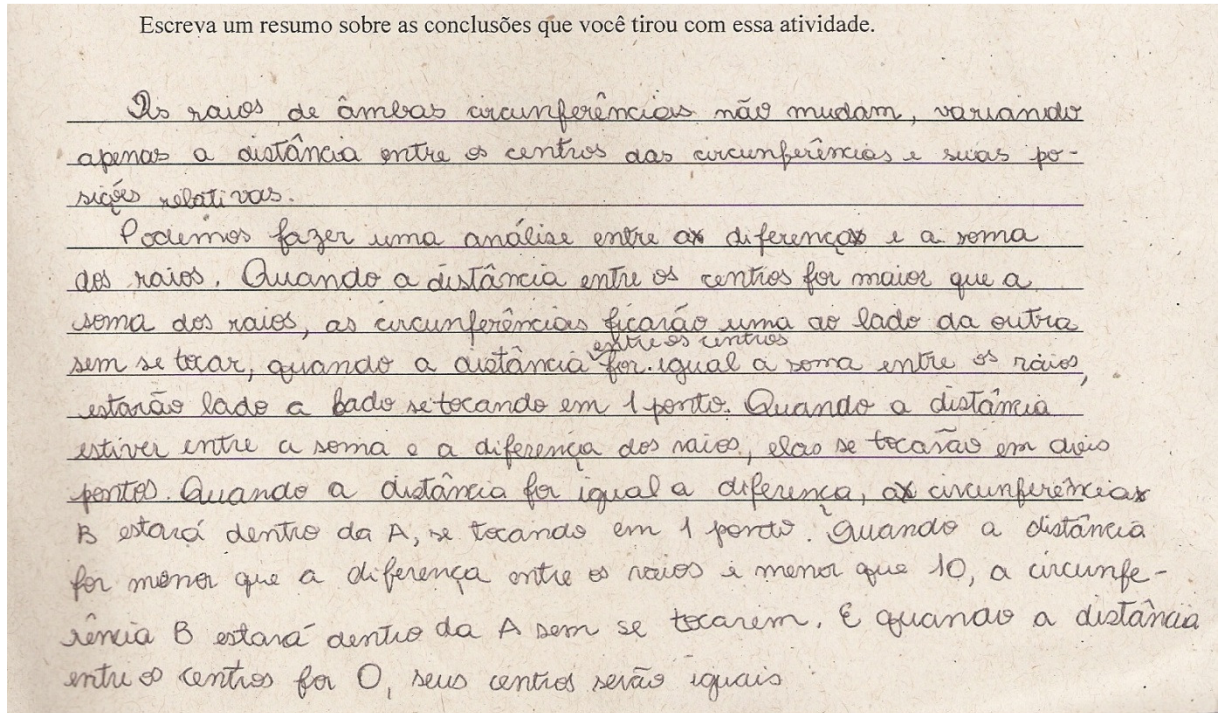 Escreva um resumo sobre as conclusões que você tirou com essa atividade.
Os raios de âmbas circunferências não mudam, variando
apenas a distância entre os centros das circunferências e suas po-
sições relativas.
Podemos fazer uma análise entre a diferença e a soma
dos raios. Quando a distância entre os centros for maior que a
soma dos raios, as circunferências ficarão uma ao lado da outra
sem se tocar, quando a distância entre os centros for igual a soma entre os raios,
estarão lado a lado se tocando em 1 ponto. Quando a distância
estiver entre a soma e a diferença dos raios, elas se tocarão em dois
pontos. Quando a distância for igual a diferença, a circunferência
B estará dentro da A, se tocando em 1 ponto. Quando a distância
for menor que a diferença entre os raios e menor que 10, a circunfe-
rência B estará dentro da A sem se tocarem. E quando a distância
entre os centros for 0, seus centros serão iguais